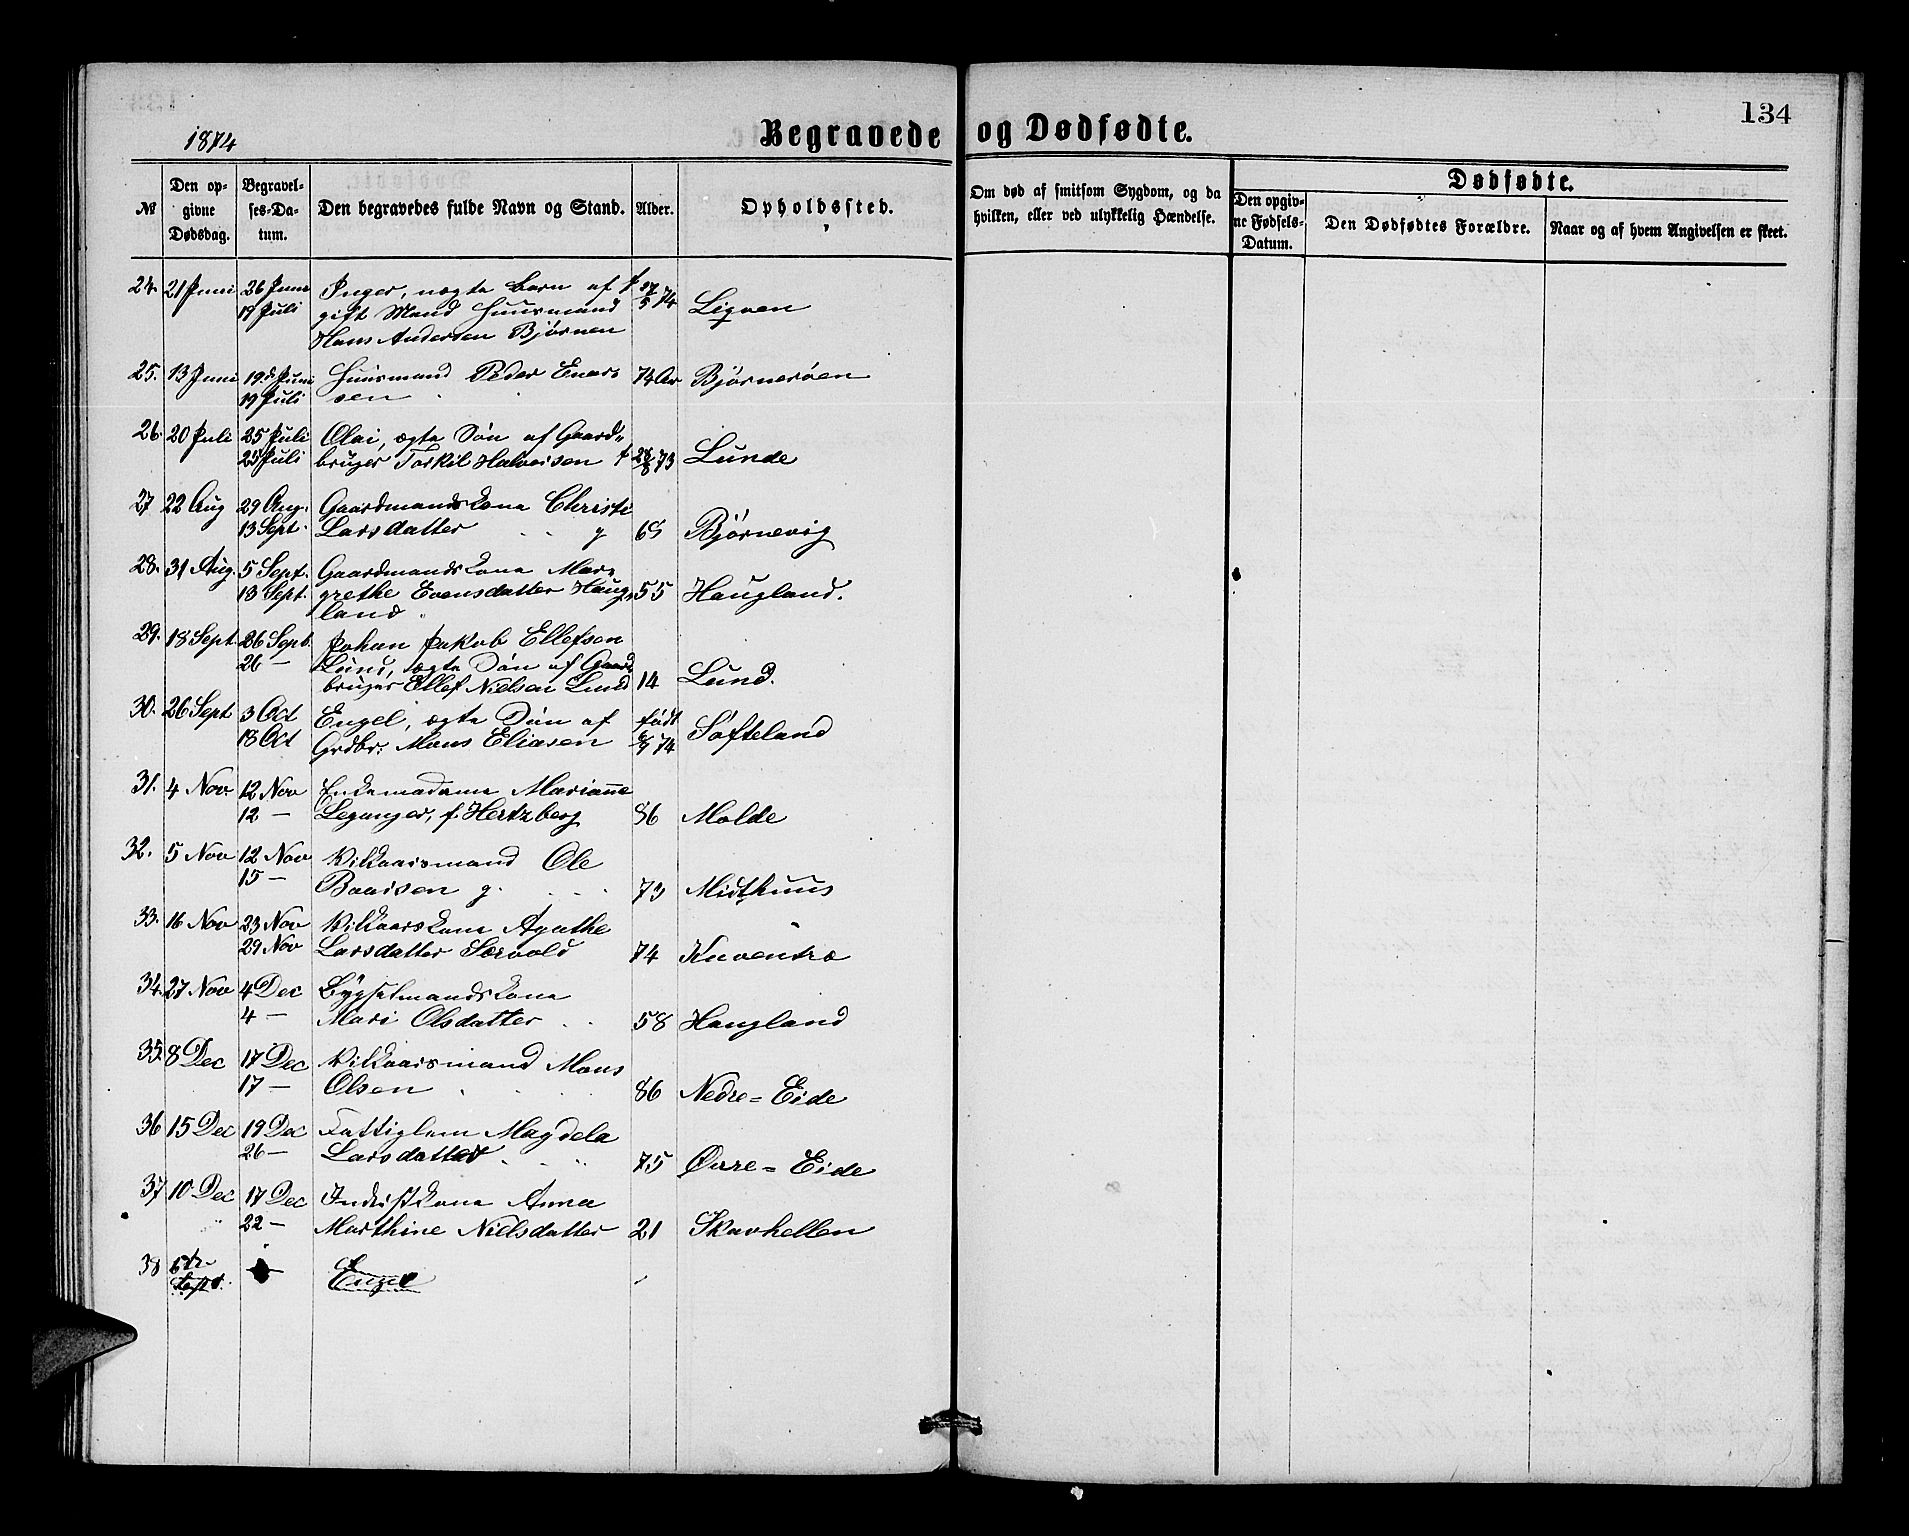 134
1874
Begravede og Dødfødte.
№
Den op-
givne
Dødsdag.
Begravel-
ses-Da-
tum.
Den begravedes fulde Navn og Stand.
Alder.
Opholdssted.
Om død af smitsom Sygdom, og da
hvilken, eller ved ulykkelig Hændelse.
Dødfødte.
Den opgiv-
ne Fødsels-
Datum.
Den Dødfødtes Forældre.
Naar og af hvem Angivelsen er skeet.
24. 21 Juni 26 Juni Inger, uægte barn af f 27/5 74
19 Juli gift Mand Huusmand Ligven
Hans Andersen Bjørnen
25. 13 Juni 19d Juni Huusmand Peder Enars 74 Ar Bjørnerøen
19 Juli sen
26. 20 Juli 25 Juli Olai, ægte Søn af Gaard-
25 Juli bruger Torkil Halvorsen f 28/8 73 Lunde
27 22 Aug 29 Aug. Gaardmandskone Christi
13 Sept. Larsdatter g 68 Bjørnevig
28. 31 Aug. 5 Sept. Gaardmandskone Mar-
13 Sept. grethe Evensdatter Haug- 55 Haugland.
land
29. 18 Sept. 26 Sept. Johan Jakob Ellefsen
26 — Lund, ægte Søn af Gaard
bruger Ellef Nielsen Lund 14 Lund.
30. 26 Sept 3 Oct Engel, ægte Søn af født
18 Oct Grdbr. Mons Eliasen 6/9 74 Søfteland
31. 4 Nov. 12 Nov Enkemadame Marianne
12 — Leganger, f. Hertzberg 86 Molde
32. 5 Nov 12 Nov Vilkaarsmand Ole
15 — Baarsen g. 73 Midthuus
33. 16 Nov 23 Nov Vilkaarskone Agathe
29 Nov Larsdatter Særvold 74 Kuventræ
34. 27 Nov 4 Dec Bygselmandskone
4 — Mari Olsdatter 58 Haugland
35. 8 Dec 17 Dec Vilkaarsmand Mons
17 — Olsen 86 Nedre-Eide
36 15 Dec 19 Dec Fattiglem Magdela
26 — Larsdatter 75 Øvre-Eide
37 10 Dec 17 Dec Inderstkone Anna
22 — Marthine Nielsdatter 21 Skavhellen
38 6te Engel
Sept.